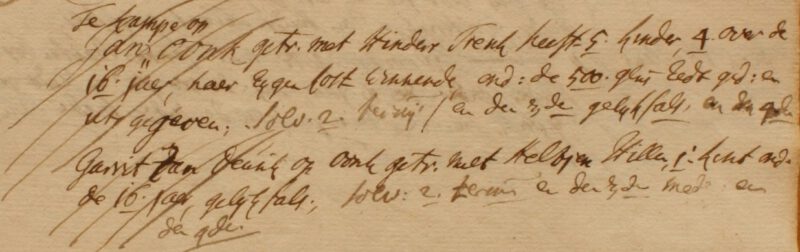 Te Kampe op
Jan Oonk getr. met Hinders Trenk heeft 5. kinder, 4 over de
16. jaer, haer Eygen kost winnende ond: de 500. gl: Eedt ged: en
uts gegeven; solv. 2. termij en den 3den gelykfals. en den 4den
Garrit Jan Deunk op Oonk getr. met Helbjen Wille, 1. kint ond.
de 16. jaer, gelykfals; solv: 2. termi en den 3den mede en
den 4den